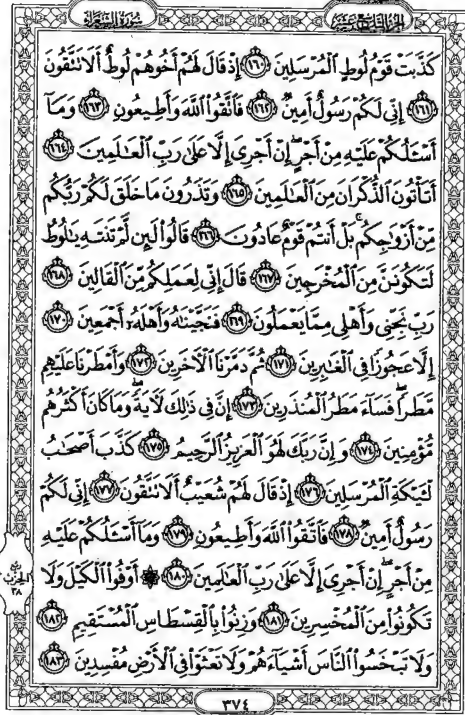 سُورَةُ الشُّعَرَاءِ
الجُزْءُ التَّاسِعَ عَشَرَ
كَذَّبَتْ قَوْمُ لُوطٍ ٱلْمُرْسَلِينَ ١٦٠ إِذْ قَالَ لَهُمْ أَخُوهُمْ لُوطٌ أَلَا تَتَّقُونَ
١٦١ إِنِّي لَكُمْ رَسُولٌ أَمِينٌ ١٦٢ فَٱتَّقُوا۟ ٱللَّهَ وَأَطِيعُونِ ١٦٣ وَمَآ
أَسْـَٔلُكُمْ عَلَيْهِ مِنْ أَجْرٍ إِنْ أَجْرِىَ إِلَّا عَلَىٰ رَبِّ ٱلْعَـٰلَمِينَ ١٦٤
أَتَأْتُونَ ٱلذُّكْرَانَ مِنَ ٱلْعَـٰلَمِينَ ١٦٥ وَتَذَرُونَ مَا خَلَقَ لَكُمْ رَبُّكُم
مِّنْ أَزْوَٰجِكُم بَلْ أَنتُمْ قَوْمٌ عَادُونَ ١٦٦ قَالُوا۟ لَئِن لَّمْ تَنتَهِ يَـٰلُوطُ
لَتَكُونَنَّ مِنَ ٱلْمُخْرَجِينَ ١٦٧ قَالَ إِنِّى لِعَمَلِكُم مِّنَ ٱلْقَالِينَ ١٦٨
رَبِّ نَجِّنِى وَأَهْلِى مِمَّا يَعْمَلُونَ ١٦٩ فَنَجَّيْنَـٰهُ وَأَهْلَهُۥٓ أَجْمَعِينَ ١٧٠
إِلَّا عَجُوزًا فِى ٱلْغَـٰبِرِينَ ١٧١ ثُمَّ دَمَّرْنَا ٱلْـَٔاخَرِينَ ١٧٢ وَأَمْطَرْنَا عَلَيْهِم
مَّطَرًا فَسَآءَ مَطَرُ ٱلْمُنذَرِينَ ١٧٣ إِنَّ فِى ذَٰلِكَ لَـَٔايَةً وَمَا كَانَ أَكْثَرُهُم
مُّؤْمِنِينَ ١٧٤ وَإِنَّ رَبَّكَ لَهُوَ ٱلْعَزِيزُ ٱلرَّحِيمُ ١٧٥ كَذَّبَ أَصْحَـٰبُ
لْـَٔيْكَةِ ٱلْمُرْسَلِينَ ١٧٦ إِذْ قَالَ لَهُمْ شُعَيْبٌ أَلَا تَتَّقُونَ ١٧٧ إِنِّى لَكُمْ
رَسُولٌ أَمِينٌ ١٧٨ فَٱتَّقُوا۟ ٱللَّهَ وَأَطِيعُونِ ١٧٩ وَمَآ أَسْـَٔلُكُمْ عَلَيْهِ
مِنْ أَجْرٍ إِنْ أَجْرِىَ إِلَّا عَلَىٰ رَبِّ ٱلْعَـٰلَمِينَ ١٨٠ ۞ أَوْفُوا۟ ٱلْكَيْلَ وَلَا
تَكُونُوا۟ مِنَ ٱلْمُخْسِرِينَ ١٨١ وَزِنُوا۟ بِٱلْقِسْطَاسِ ٱلْمُسْتَقِيمِ ١٨٢
وَلَا تَبْخَسُوا۟ ٱلنَّاسَ أَشْيَآءَهُمْ وَلَا تَعْثَوْا۟ فِى ٱلْأَرْضِ مُفْسِدِينَ ١٨٣
الحزب
٣٨
٣٧٤